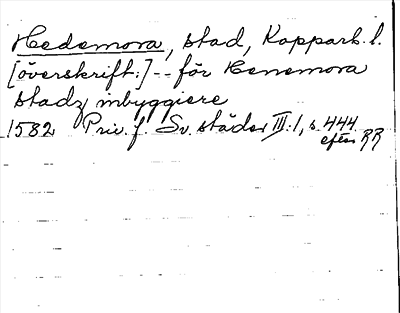 Hedemora, stad, Kopparb. l.
[överskrift:] -- för Henemora
stadz inbyggiere
1582 Priv. f. Sv. städer III:1, s. 444
efter RR